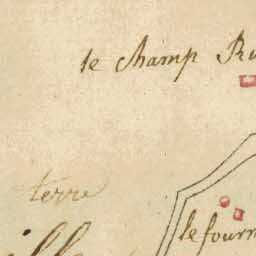 le champ Ru
terre
le fourn